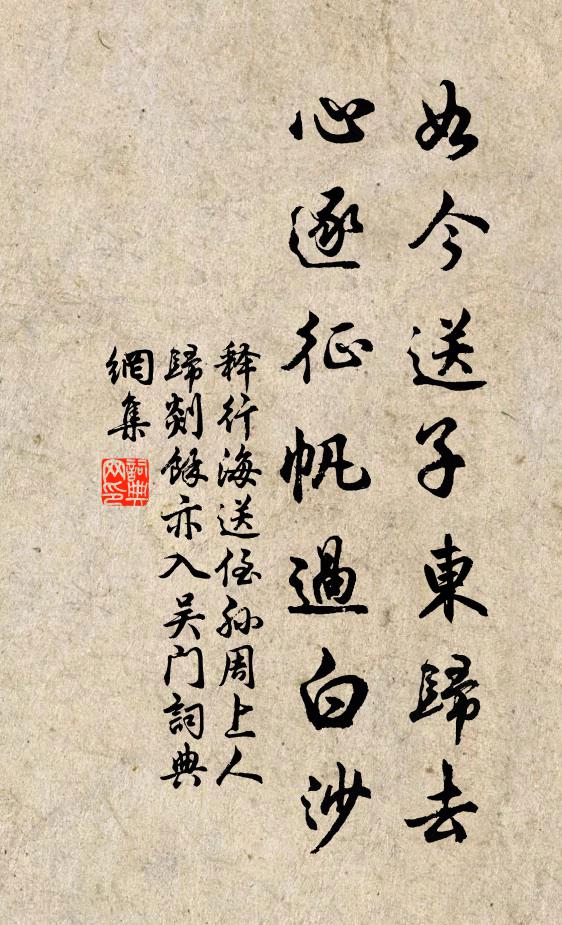 如今送子東歸去
心逐征帆過白沙
释行海送侄孙周上人
歸剡餘亦入吴门詞典
網集
詞典
网印